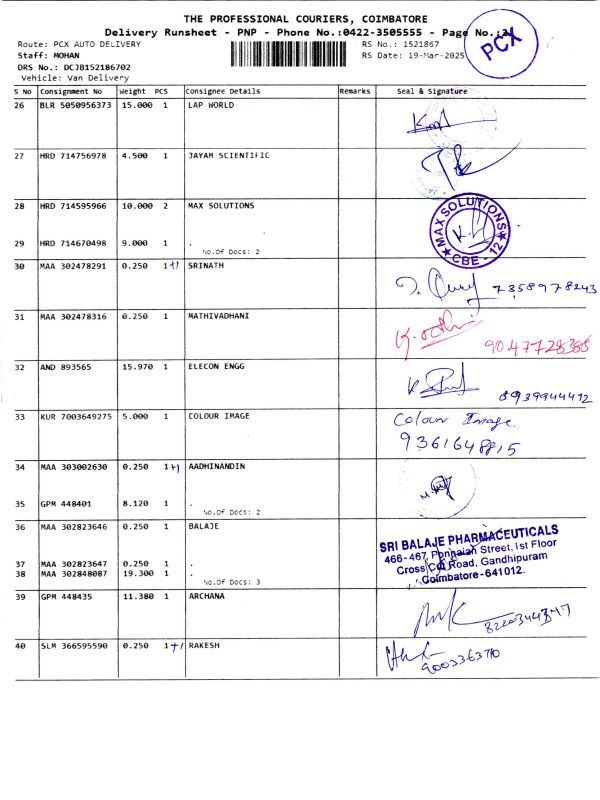 THE PROFESSIONAL COURIERS, COIMBATORE
Delivery Runsheet - PNP - Phone No.:0422-3505555 - Page No.:
PCX
Route: PCX AUTO DELIVERY
RS No.: 1521867
Staff: MOHAN
RS Date: 19-Mar-2025
DRS No.: DCJB152186702
Vehicle: Van Delivery
S No Consignment No Weight PCS Consignee Details Remarks Seal & Signature
26 BLR 5050956373 15.000 1 LAP WORLD
27 HRD 714756978 4.500 1 JAYAM SCIENTIFIC
28 HRD 714595966 10.000 2 MAX SOLUTIONS
MAX SOLUTIONS
★ CBE - 12 ★
29 HRD 714670498 9.000 1 .
No.Of Docs: 2
30 MAA 302478291 0.250 1+1 SRINATH
7358978243
31 MAA 302478316 0.250 1 MATHIVADHANI
9047728388
32 AND 893565 15.970 1 ELECON ENGG
8939944412
33 KUR 7003649275 5.000 1 COLOUR IMAGE
Colour Image
9361648815
34 MAA 303002630 0.250 1+1 AADHINANDIN
35 GPM 448401 8.120 1 .
No.Of Docs: 2
36 MAA 302823646 0.250 1 BALAJE
SRI BALAJE PHARMACEUTICALS
466-467, Ponnaiah Street, 1st Floor
Cross Cut Road, Gandhipuram
Coimbatore - 641012.
37 MAA 302823647 0.250 1 .
38 MAA 302848087 19.300 1 .
No.Of Docs: 3
39 GPM 448435 11.380 1 ARCHANA
40 SLM 366595590 0.250 1+1 RAKESH